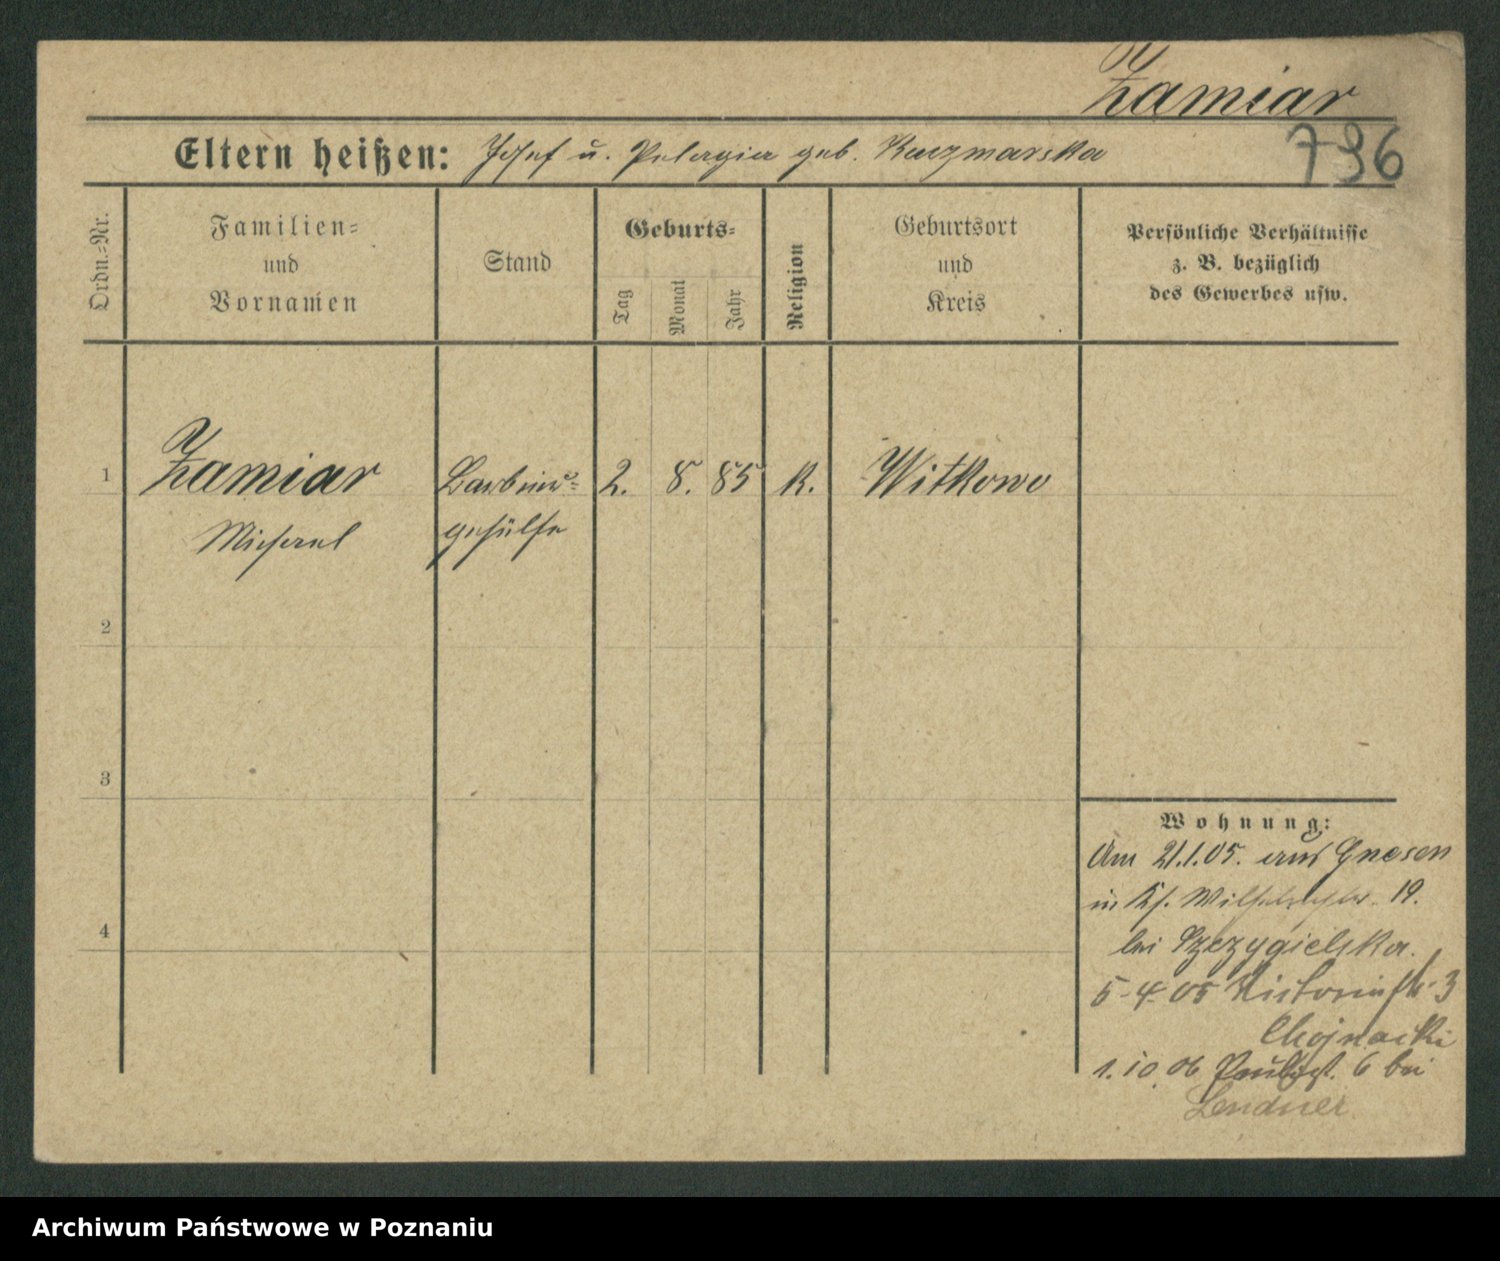 Zamiar
Eltern heißen: Josef u. Pelagia geb. Kaczmarska
796
Ordn.-Nr.
Familien-
und
Vornamen
Stand
Geburts-
Tag
Monat
Jahr
Religion
Geburtsort
und
Kreis
Persönliche Verhältnisse
z. B. bezüglich
des Gewerbes usw.
1 Zamiar Barbier- 2. 8. 85 K. Witkowo
Michael gehülfe
2
3
4
Wohnung:
Am 21.1.05. aus Gnesen
in 19.
bei Szczygielska.
5-4-05 Victoriastr. 3
Chojnacki
1.10.06 6 bei
Lendner
Archiwum Państwowe w Poznaniu